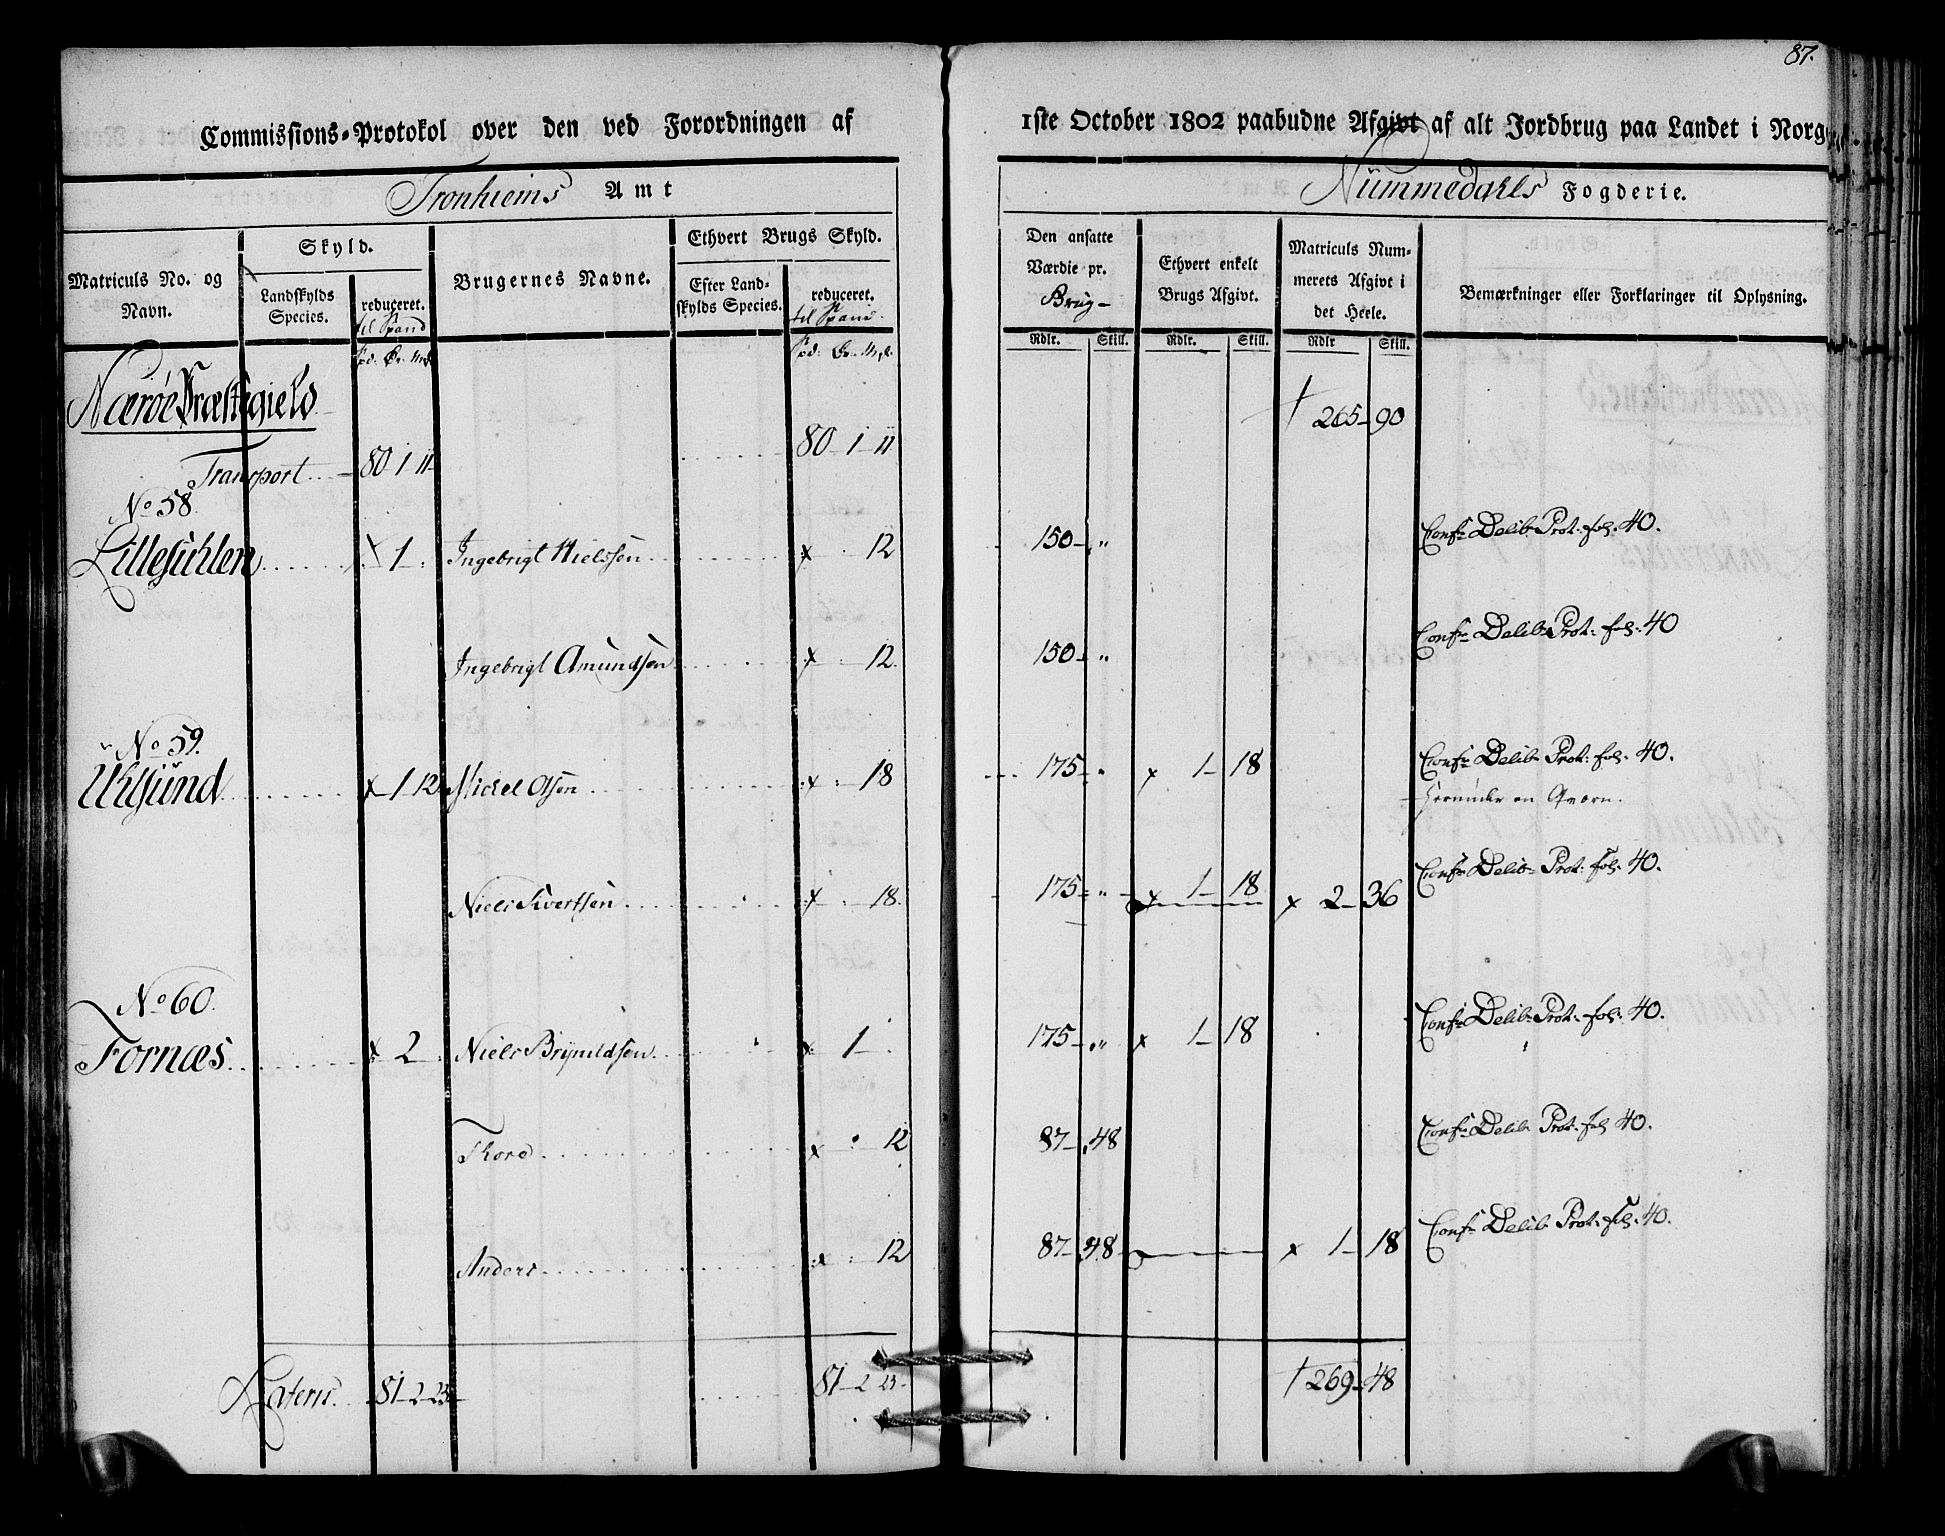 87.
Commissions-Protokol over den ved Forordningen af 1ste October 1802 paabudne Afgivt af alt Jordbrug paa Landet i Norg
Tronhiems Amt
Nummedahls Fogderie.
Matriculs No. og Navn.
Skyld.
Landskylds Species.
reduceret. til Spand
Brugernes Navne.
Ethvert Brugs Skyld.
Efter Landskylds Species.
reduceret. til Spand.
Den ansatte Værdie pr. Brug-
Ethvert enkelt Brugs Afgivt.
Matriculs Nummerets Afgivt i det Heele.
Bemærkninger eller Forklaringer til Oplysning.
Rdlr. Skill. Rdlr. Skill. Rdlr Skill.
Nærøe Præstegield
265-90
Transport 80 1 11 80-1-11
No 58.
Lillesuhlen x 1 Ingebrigt Nielssen x 12 150-" Confr Delib: Prot: fol: 40.
Ingebrigt Amundsen x 12. 150-" Confr Delib: Prot: fol: 40
No 59.
Ursund x 1 12 Mickel Olsen x 18 175-" x 1-18 Confr Delib: Prot: fol: 40.
herunder en Qvern.
Niels Sivertsen x 18. 175-" x 1-18 x 2-36 Confr Delib: Prot: fol: 40.
No 60.
Fornæs x 2 Niels Brynildsen x 1 175-" x 1-18 Confr Delib: Prot: fol: 40.
Thore x 12 87-48 Confr Delib: Prot: fol 40.
Anders x 12 87-48 x 1-18 Confr Delib: Prot: fol: 40.
Lateris 81-2-23 81-2 23 269-48